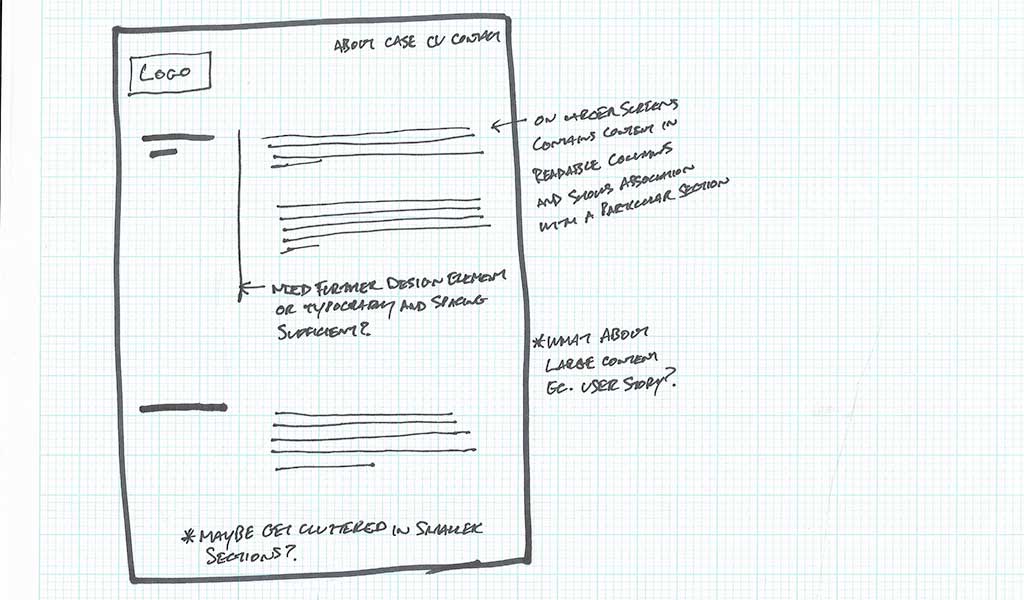 ABOUT CASE CV CONTACT
LOGO
ON LARGER SCREENS
CONTAINS CONTENT IN
READABLE COLUMNS
AND SHOWS ASSOCIATION
WITH A PARTICULAR SECTION
NEED FURTHER DESIGN ELEMENT
OR TYPOGRAPHY AND SPACING
SUFFICIENT?
*WHAT ABOUT
LARGE CONTENT
EG. USER STORY?
*MAYBE GET CLUTTERED IN SMALLER
SECTIONS?